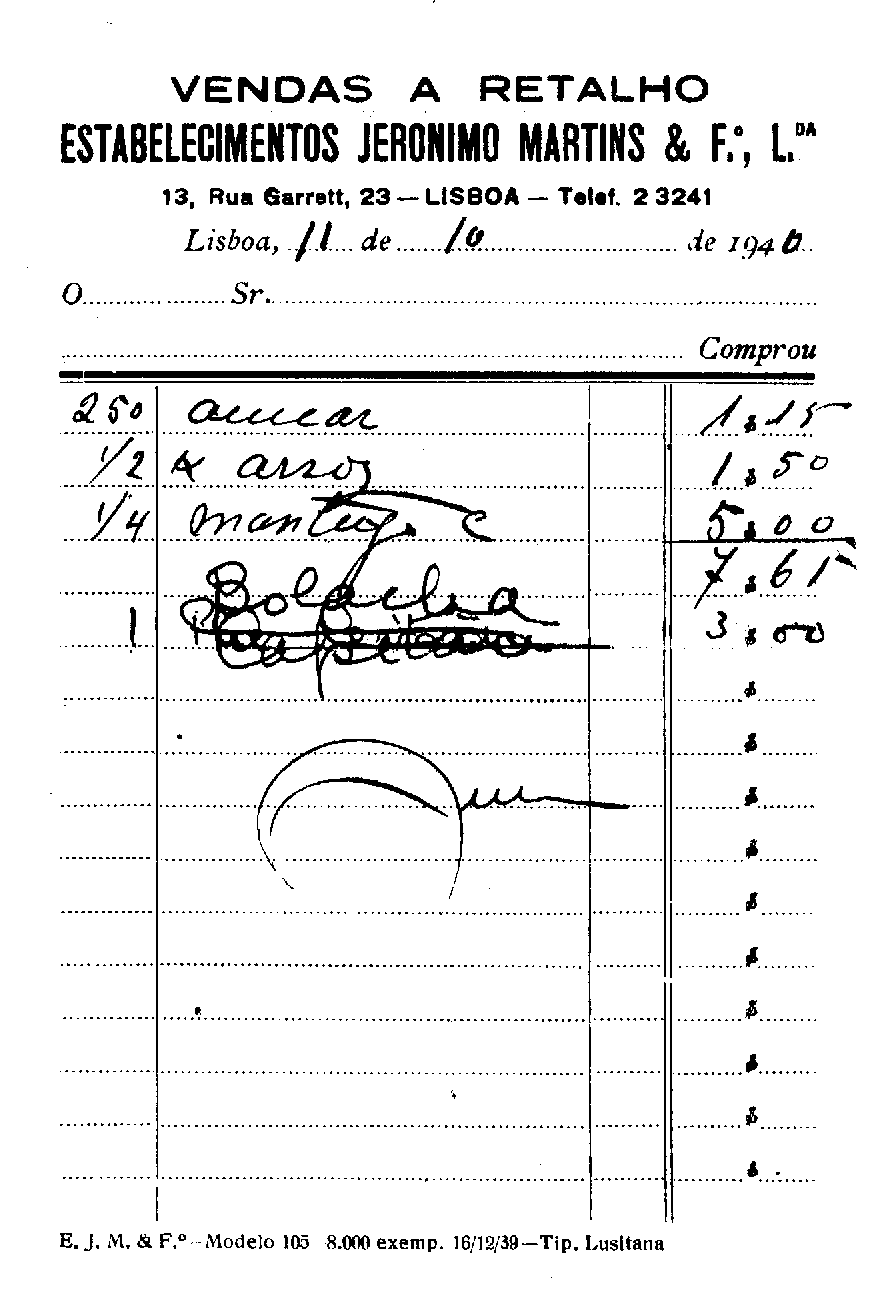 VENDAS A RETALHO
ESTABELECIMENTOS JERONIMO MARTINS & F.º, L.DA
13, Rua Garrett, 23 — LISBOA — Telef. 2 3241
Lisboa, 11 de 10 de 1940
O Sr.
Comprou
250 assucar 1$15
1/2 K arroz 1$50
1/4 manteiga C 5$00
7$65
Bolacha
1 3$00
E. J. M. & F.º - Modelo 105 8.000 exemp. 16/12/39 — Tip. Lusitana